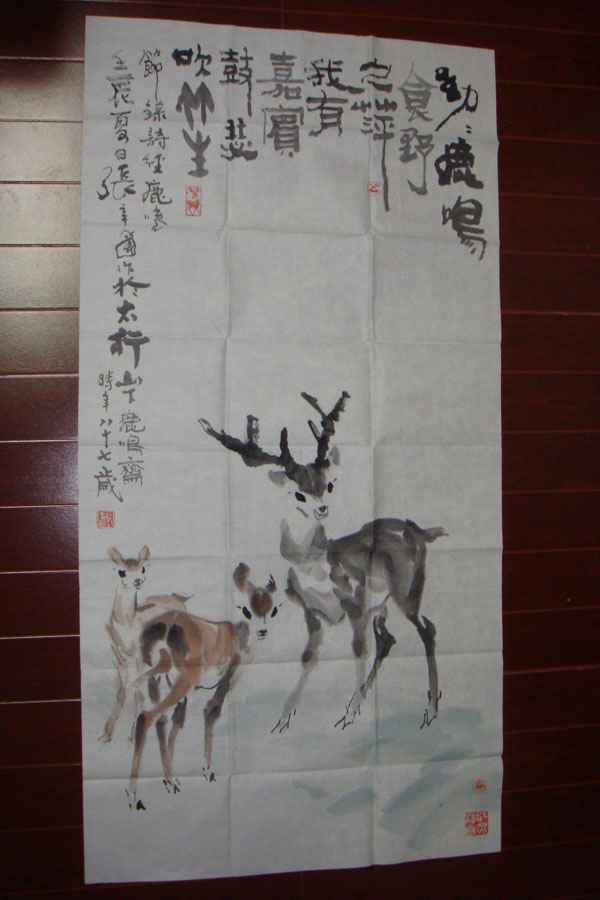 呦々鹿鳴
食野
之苹
我有
嘉賓
鼓瑟
吹笙
節錄詩經鹿鳴
壬辰夏日張辛國作於太行山下鹿鳴齋
時年八十七歲